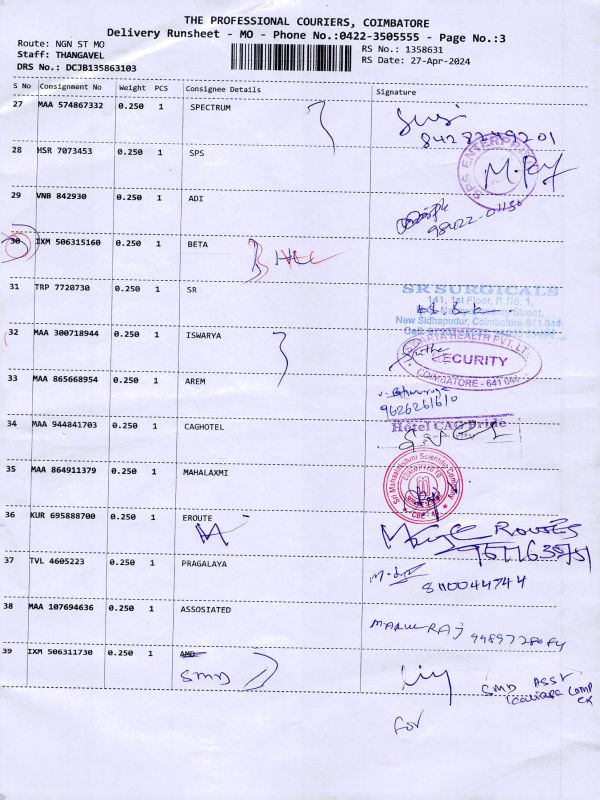 THE PROFESSIONAL COURIERS, COIMBATORE
Delivery Runsheet - MO - Phone No.:0422-3505555 - Page No.:3
Route: NGN ST MO
Staff: THANGAVEL
DRS No.: DCJB135863103
RS No.: 1358631
RS Date: 27-Apr-2024
S No Consignment No Weight PCS Consignee Details Signature
27 MAA 574867332 0.250 1 SPECTRUM
28 HSR 7073453 0.250 1 SPS
SPS ENTERPRISE
29 VNB 842930 0.250 1 ADI
30 IXM 506315160 0.250 1 BETA
31 TRP 7720730 0.250 1 SR
SR SURGICALS
141, 1st Floor, R.No. 1,
Street,
New Sidhapudur, Coimbatore-641 044
32 MAA 300718944 0.250 1 ISWARYA
HEALTH PVT. LT
SECURITY
COIMBATORE - 641 044
33 MAA 865668954 0.250 1 AREM
9626261610
34 MAA 944841703 0.250 1 CAGHOTEL
Hotel CAG Pride
35 MAA 864911379 0.250 1 MAHALAXMI
Sri Mahalakshmi Scientific Company
36 KUR 695888700 0.250 1 EROUTE
ROUTES
37 TVL 4605223 0.250 1 PRAGALAYA
8110044744
38 MAA 107694636 0.250 1 ASSOSIATED
39 IXM 506311730 0.250 1 AMD
SMD
SMD ASST
for